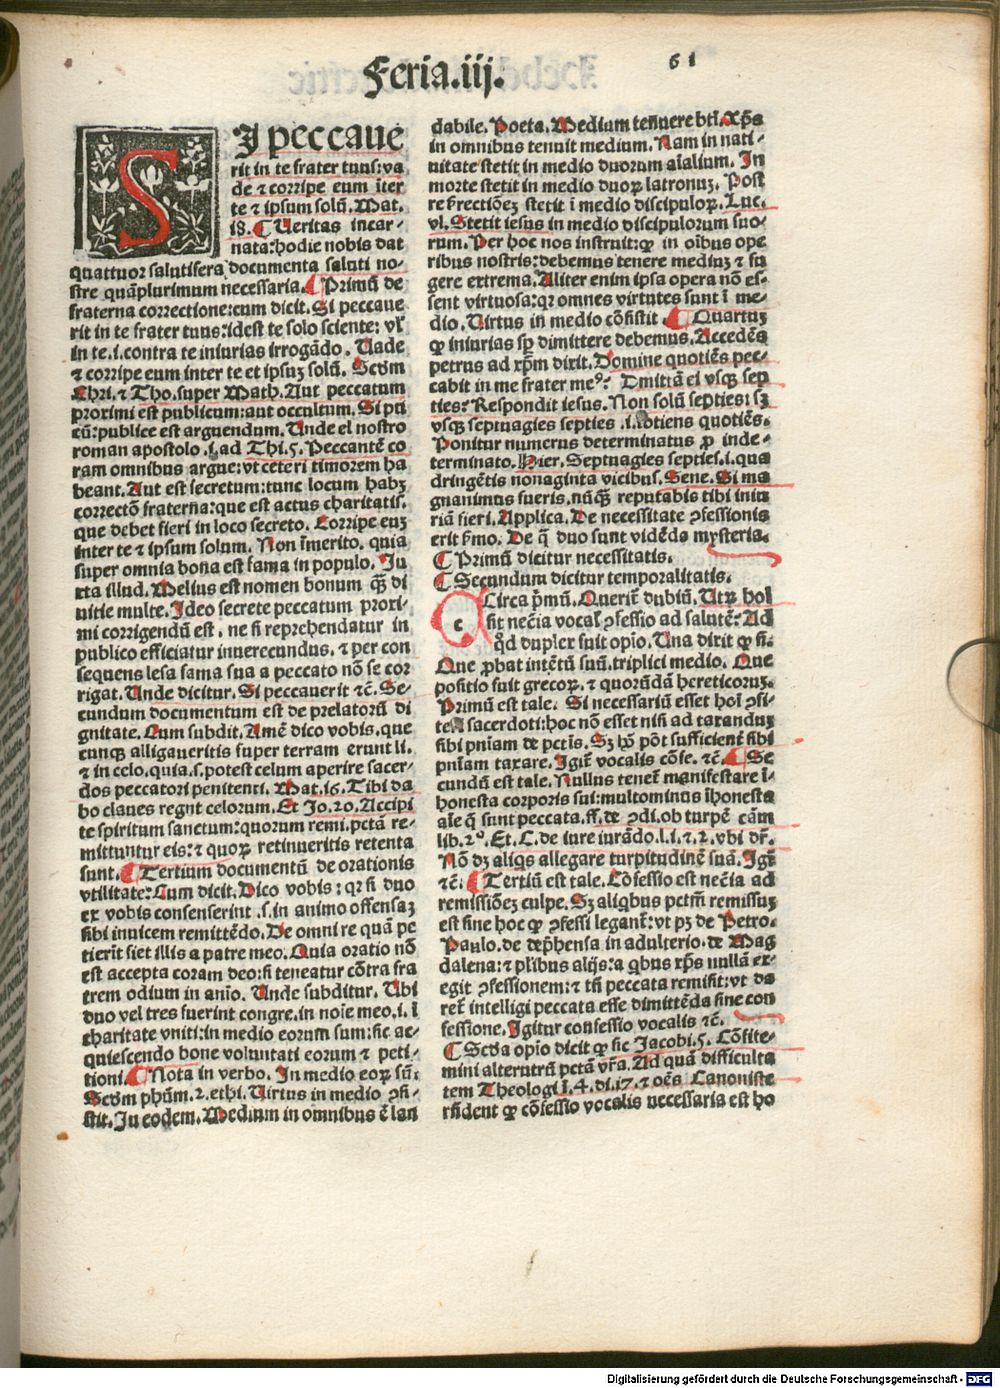 Feria.iij.
61
SI peccaue
rit in te frater tuus: va
de ⁊ corripe eum īter
te ⁊ ipsum solū. Mat.
18. ¶ Ueritas incar-
nata: hodie nobis dat
quattuor salutifera documenta saluti no-
stre quāplurimum necessaria. ¶ Primū de
fraterna correctione: cum dicit. Si peccaue
rit in te frater tuus: idest te solo sciente: vl'
in te .i. contra te iniurias irrogādo. Uade
⁊ corripe eum inter te et ipsuꝫ solū. Scd̄m
Chri. ⁊ Tho. super Math. Aut peccatum
proximi est publicum: aut occultum. Si pu
cū: publice est arguendum. Unde el nostro
roman apostolo .i. ad Thi. 5. Peccantē co
ram omnibus argue: vt ceteri timorem ha
beant. Aut est secretum: tunc locum habꝫ
correctō fraterna: que est actus charitatis.
que debet fieri in loco secreto. Corripe euꝫ
inter te ⁊ ipsum solum. Non īmerito. quia
super omnia bona est fama in populo. Iu
xta illud. Melius est nomen bonum qȝ̄ di
uitie multe. Ideo secrete peccatum proxi-
mi corrigendū est. ne si reprehendatur in
publico efficiatur inuerecundus. ⁊ per con
sequens lesa fama sua a peccato nō se cor
rigat. Unde dicitur. Si peccauerit ⁊c̄. Se-
cundum documentum est de prelatorū di
gnitate. Cum subdit. Amē dico vobis. que
cunqȝ alligaueritis super terram erunt li.
⁊ in celo. quia .s. potest celum aperire sacer-
dos peccatori penitenti. Mat. 16. Tibi da
bo claues regnt celorum. Et Io. 20. Accipi
te spiritum sanctum: quorum remi. pctā re-
mittuntur eis: ⁊ quoꝝ retinueritis retenta
sunt. ¶ Tertium documentū de orationis
vtilitate: Cum dicit. Dico vobis: qꝛ si duo
ex vobis consenserint .s. in animo offensaꝫ
sibi inuicem remittēdo. De omni re quā pe
tierīt fiet illis a patre meo. Quia oratio nō
est accepta coram deo: si teneatur cōtra fra
trem odium in anīo. Unde subditur. Ubi
duo vel tres fuerint congre. in noīe meo .i. ī
charitate vniti: in medio eorum sum: sic ac-
quiescendo bone voluntati eorum ⁊ peti-
tioni. ¶ Nota in verbo. In medio eoꝝ sū:
Scd̄m phūm. 2. ethi. Uirtus in medio ꝯsi-
stit. In eodem. Medium in omnibus ē lau
dabile. Poeta. Medium tenuere btī. Xp̄s
in omnibus tenuit medium. Nam in nati-
uitate stetit in medio duorum aīalium. In
morte stetit in medio duoꝝ latronuꝫ. Post
resurrectiōeꝫ stetit ī medio discipuloꝝ. Luc.
vl. Stetit iesus in medio discipulorum suo-
rum. Per hoc nos instruit: qꝙ in oībus ope
ribus nostris: debemus tenere mediuꝫ ⁊ fu
gere extrema. Aliter enim ipsa opera nō es-
sent virtuosa: qꝛ omnes virtutes sunt ī me-
dio. Uirtus in medio cōsistit. ¶ Quartuꝫ
ꝙ iniurias sp̄ dimittere debemus. Accedēs
petrus ad xp̄m dixit. Domine quotiēs pec-
cabit in me frater me⁹? Dmittā ei vsqȝ sep
ties? Respondit iesus. Non solū septies: sꝫ
vsqȝ septuagies septies .i. totiens quotiēs.
Ponitur numerus determinatus p̱ inde-
terminato. Hier. Septuagies septies .i. qua
dringētis nonaginta vicibus. Sene. Si ma
gnanimus fueris. nūqȝ reputabis tibi iniu
riā fieri. Applica. De necessitate ꝯfessionis
erit ẜmo. De q̄ duo sunt vidēda mysteria.
¶ Primū dicitur necessitatis.
¶ Secundum dicitur temporalitatis.
Circa p̄mū. Queriť dubiū. Utꝝ hoī
sit nec̄ia vocal' ꝯfessio ad salutē? Ad
qd̄ duplex fuit opīo. Una dixit ꝙ sī.
Que ꝓbat intētū suū. triplici medio. Que
positio fuit grecoꝝ. ⁊ quorūdā hereticoruꝫ.
Primū est tale. Si necessariū esset hoī ꝯfi-
teri sacerdoti: hoc nō esset nisi ad taxanduꝫ
sibi pniam de pctīs. Sꝫ hō pōt sufficienť sibi
pniam taxare. Igiť vocalis cōfe. ⁊c̄. ¶ Se
cundū est tale. Nullus teneť manifestare ī-
honesta corporis sui: multominus īhonesta
aīe q̄ sunt peccata. ff. de ꝯdi. ob turpē cām
lib. 2°. Et. C. de iure iurādo. l. i. ⁊. 2. vbi dr̄.
Nō dꝫ aliqs allegare turpitudinē suā. Igiť
⁊c̄. ¶ Tertiū est tale. Cōfessio est nec̄ia ad
remissiōeꝫ culpe. Sꝫ aliqbus pctm̄ remissuꝫ
est sine hoc ꝙ ꝯfessi leganť: vt pꝫ de Petro.
Paulo. de dep̄hensa in adulterio. de Mag
dalena: ⁊ plībus alijs: a qbus xp̄s nullā ex-
egit ꝯfessionem: ⁊ tn̄ peccata remisit: vt da
reť intelligi peccata esse dimittēda sine con
fessione. Igitur confessio vocalis ⁊c̄.
¶ Scd̄a opīo dicit ꝙ sic Jacobi. 5. Cōfite-
mini alterutrū pctā vr̄a. Ad quā difficulta
tem Theologi ī. 4. di. 17. ⁊ oēs Canoniste
rn̄dent ꝙ cōfessio vocalis necessaria est ho
Digitalisierung gefördert durch die Deutsche Forschungsgemeinschaft - DFG